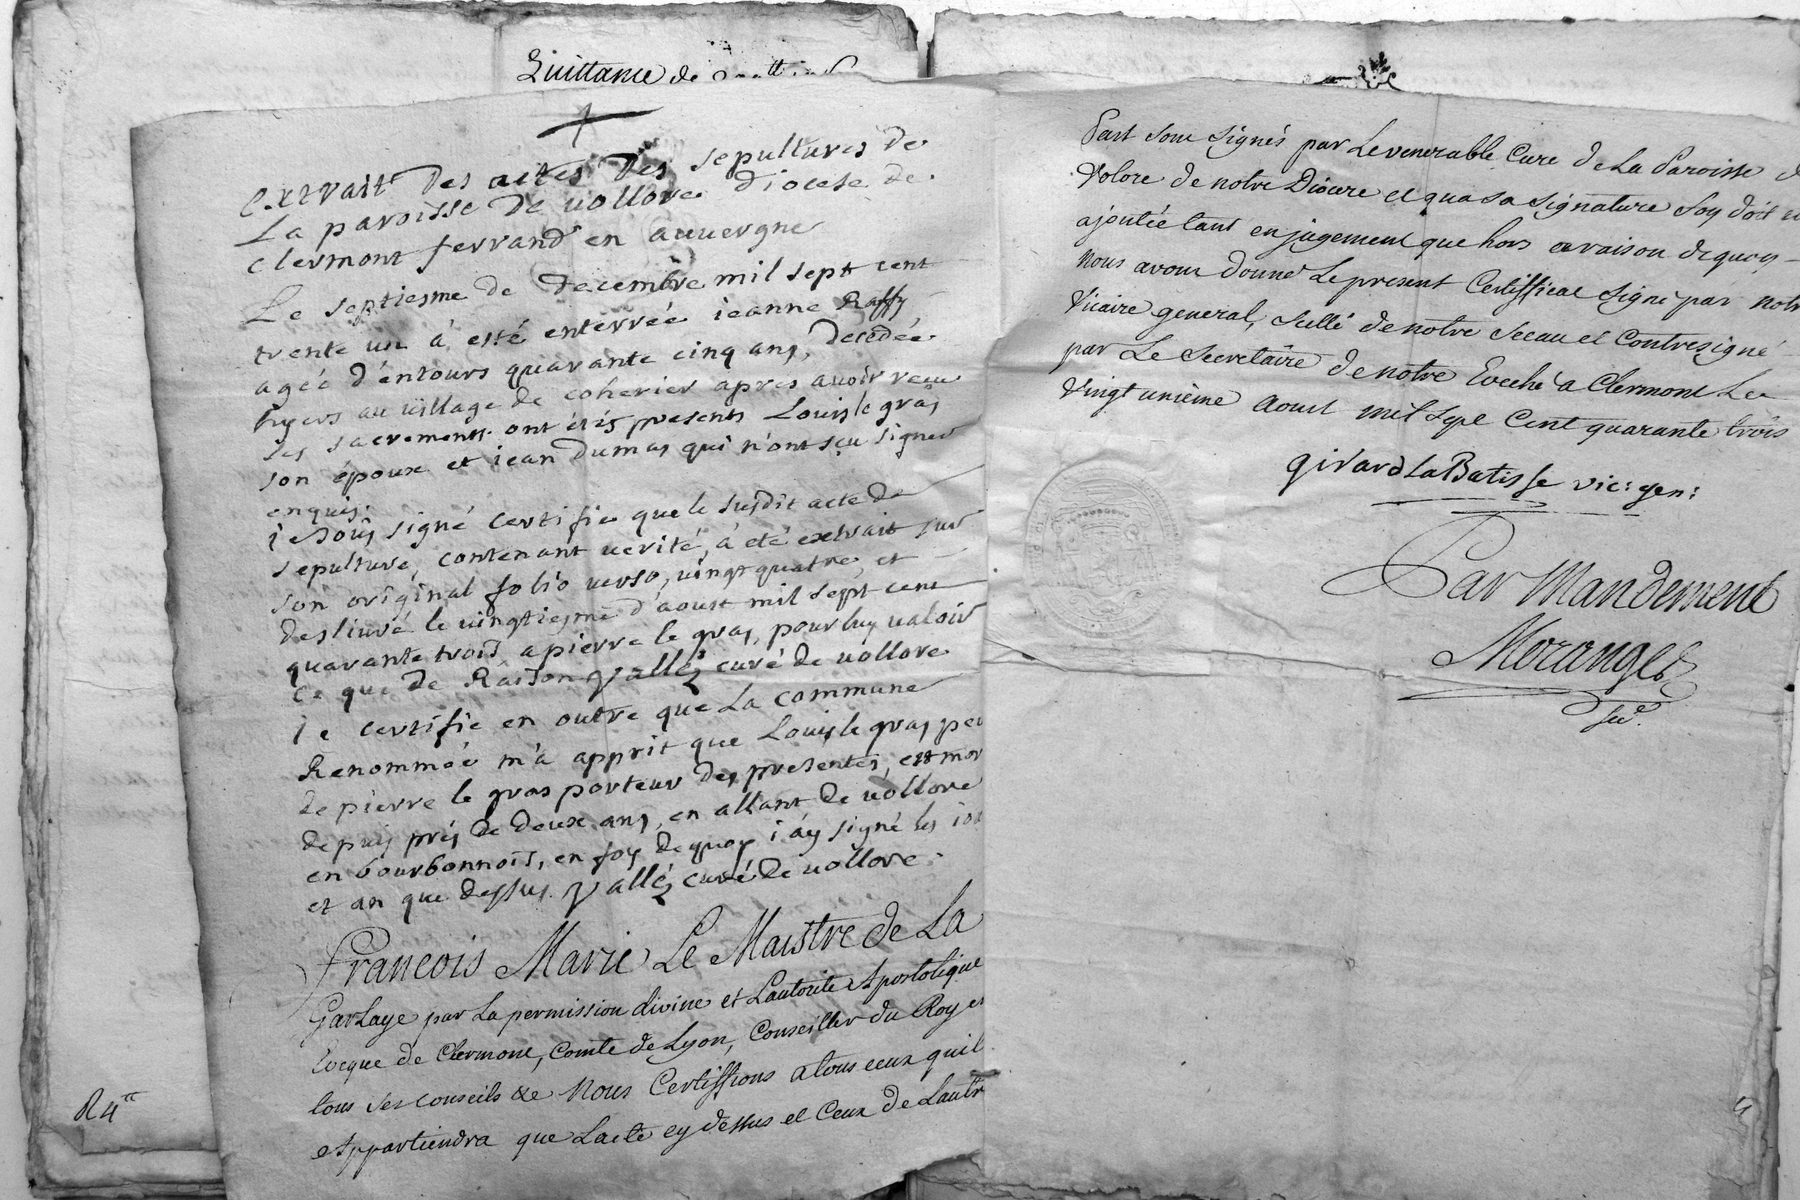 Quittance de
extrait des actes des sepultures de
La paroisse de vollore diocese de
clermont ferrand en auuergne
Le septiesme de decembre mil sept cent
trente un à esté enterrée ieanne Raffy
agée d'entours quarante cinq ans, decedée
hyers au village de coherier apres auoir receu
les sacrements. ont étés presents Louis le gras
son époux et iean dumas qui n'ont sçu signer
enquis.
ie sous signé certifie que le susdit acte de
sepulture, contenant verité, à eté extrait sur
son original folio verso, vingt quatre, et
desliuré le vingtiesme d'aoust mil sept cent
quarante trois a pierre le gras, pour luy valoir
ce que de Raison vallés curé de vollore
ie certifie en outre que La commune
Renommée m'a apprit que Louis le gras per
de pierre le gras porteur des presentes, est mor
depuis prés de deux ans, en allant de vollore
en bourbonnois, en foy de quoy i'ay signé les iou
et an que dessus. vallés curé de vollore.
Francois Marie Le Maistre de La
Garlaye par La permission divine et Lautorite Apostolique
Eveque de Clermont, Comte de Lyon, Conseiller du Roy en
tous ses conseils &c Nous Certiffions a tous ceux quil
Appartiendra que Lacte cy dessus et Ceux de Lautr
Part sont signés par Le venerable Cure de La Paroisse d
Volore de notre Diocese et qua sa signature foy doit e
ajoutée tant en jugement que hors en raison de quoy
Nous avons donné Le present Certifficat signé par notr
Vicaire general, scellé de notre Sceau et Contresigné
par Le Secretaire de notre Eveché a Clermont Le
Vingt unieme Aoust mil Sept Cent quarante trois
girard la Batisse vic: gen:
Par Mandement
Moranges
R 4